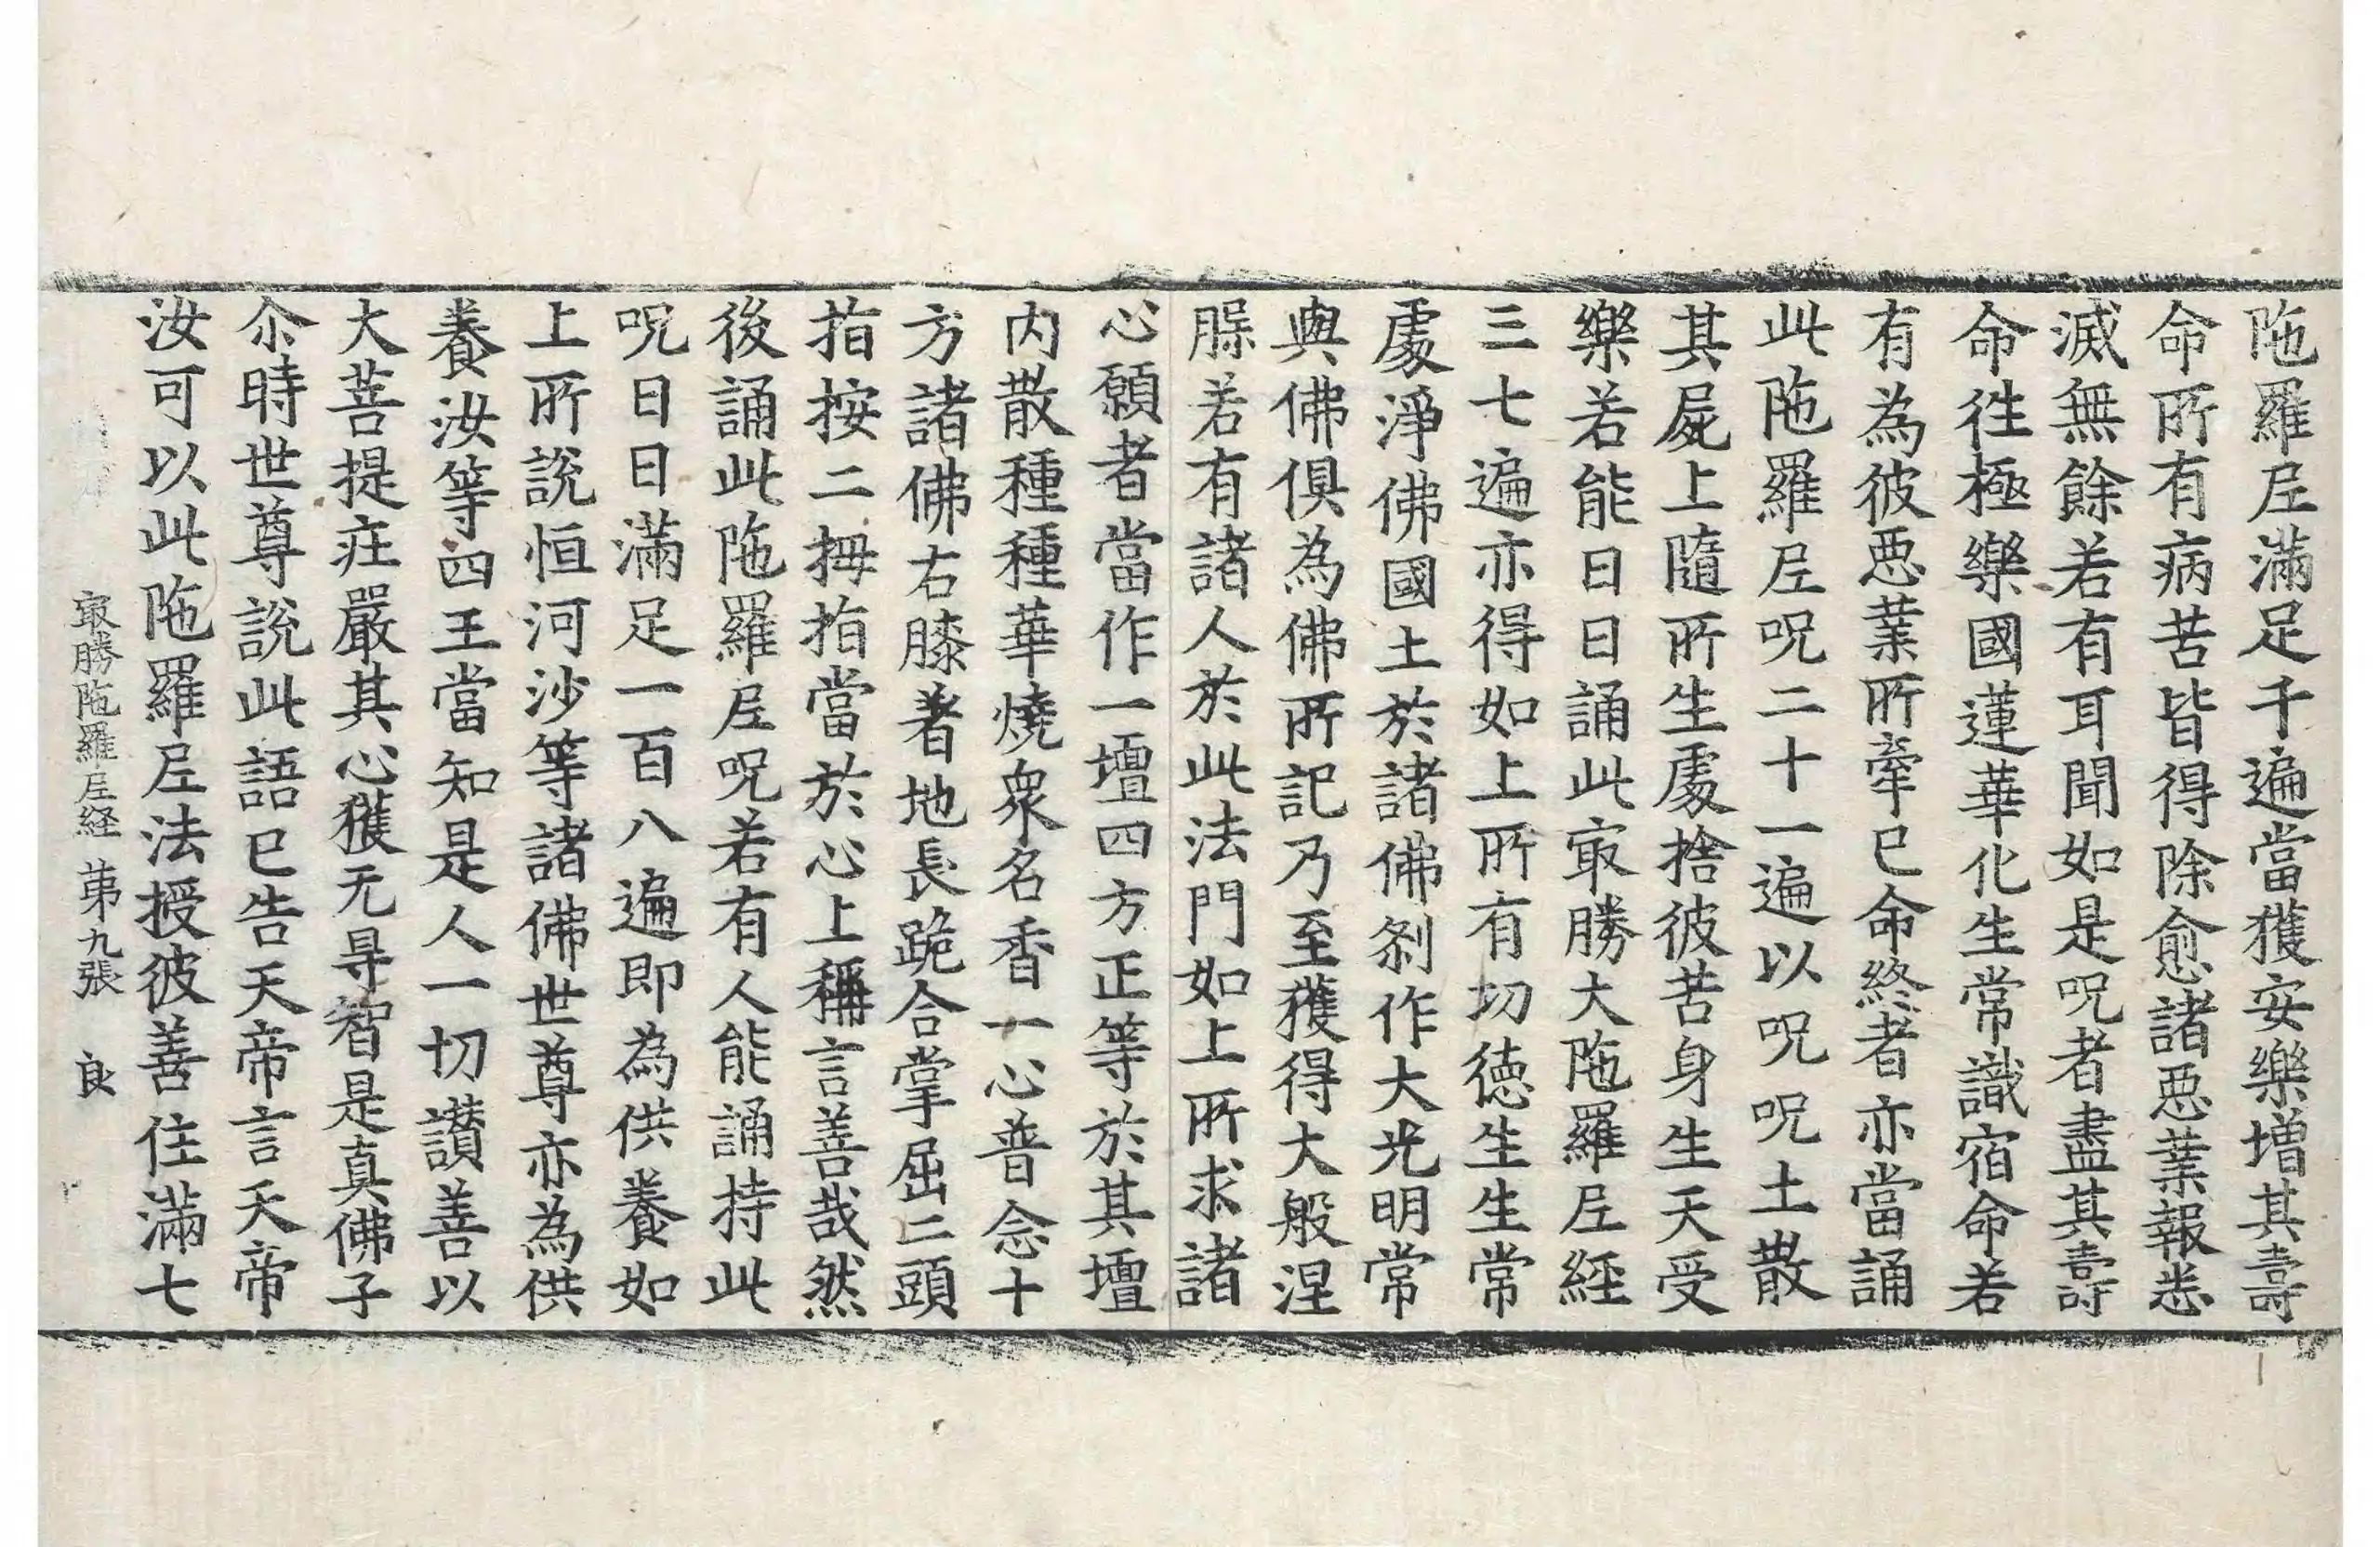 陁羅𡰱滿足千遍當獲安樂增其壽
命所有病苦皆得除愈諸𢙣業報悉
滅無餘若有耳聞如是呪者盡其壽
命徃極樂國蓮華化生常識宿命若
有為彼𢙣業所牽已命終者亦當誦
此陁羅𡰱呪二十一遍以呪呪土散
其屍上隨所生處捨彼苦身生天受
樂若能日日誦此㝡勝大陁羅𡰱経
三七遍亦得如上所有切徳生生常
處淨佛國土於諸佛刹作大光明常
與佛俱為佛所記乃至獲得大般涅
脲若有諸人於此法門如上所求諸
心願者當作一壇四方正等於其壇
内散種種華燒衆名香一心普念十
方諸佛右膝著地長跪合掌屈二頭
指按二拇指當於心上稱言善哉然
後誦此陁羅𡰱呪若有人能誦持此
呪日日滿足一百八遍即為供養如
上所說恒河沙等諸佛世尊亦為供
養汝等四王當知是人一切讃善以
大菩提疰嚴其心獲无㝵智是真佛子
尒時世尊說此語已告天帝言天帝
汝可以此陁羅𡰱法授彼善住滿七
㝡勝陁羅𡰱経 苐九張 良